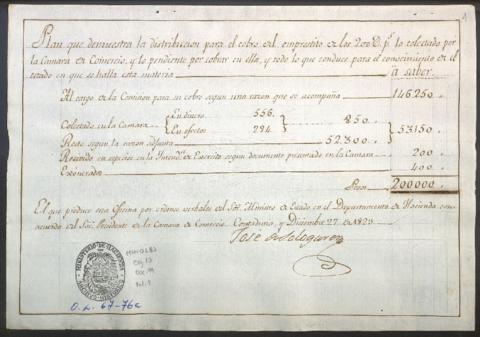 1
Plan que demuestra la distribucion para el cobro del emprestito de los 200 D. ps. lo colectado por
la Camara de Comercio, y lo pendiente por cobrar en ella, y todo lo que conduce para el conocimiento del
estado en que se halla esta materia a saber.
Al cargo de la Comision para su cobro segun una razon que se acompaña 146250.
Colectado en la Camara En dinero 556. 850. 53150.
En efectos 294.
Resto segun la razon adjunta 52.300.
Recivido en especies en la Intend.a de Exercito segun documento presentado en la Camara 200
Exônerado 400.
Pesos 200000.
El que produce esta Oficina por ordenes verbales del Sor. Ministro de Estado en el Departamento de Hacienda con
acuerdo del Sor. Presidente de la Camara de Comercio. y Diciembre 27 de 1823
José de
MINISTERIO DE HACIENDA
O.L. 67-76a